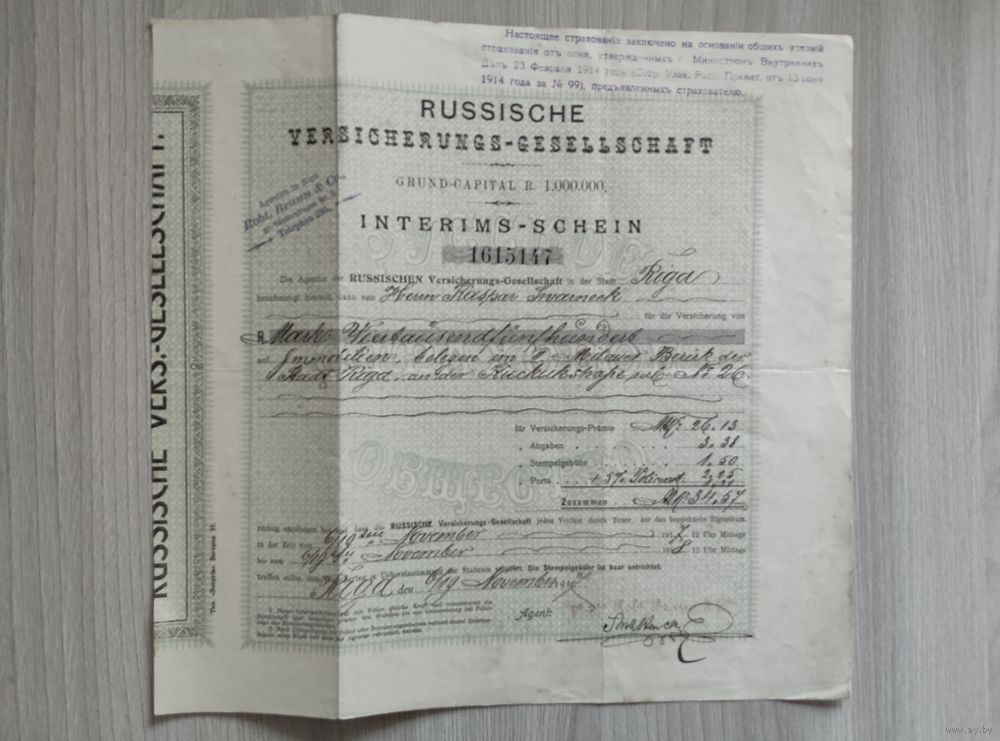 Настоящее страхованіе заключено на основаніи общихъ условій
страхованія отъ огня, утвержденныхъ г. Министромъ Внутреннихъ
Дѣлъ 23 Февраля 1914 года (Собр. Узак. Прав. отъ 13
1914 года за № 99), предъявленныхъ страхователю.
RUSSISCHE
VERSICHERUNGS-GESELLSCHAFT
GRUND-CAPITAL R. 1,000.000.
Agentur in Riga
Robt. Braun & Co.
Telephon
INTERIMS-SCHEIN
1615147
Die Agentur der RUSSISCHEN Versicherungs-Gesellschaft in der Stadt Riga
bescheinigt hiermit, dass von Herrn Kaspar
für die Versicherung von
R. Mark Viertausendfünfhundert
auf Immobilien, belegen im II. Mitauer Bezirk der
Stadt Riga, an der Kuckukstraße sub № 26.
für Versicherungs-Prämie Mk. 26.13
" Abgaben 3.38
" Stempelgebühr 1.50
" Porto + 5% 2,25
Zusammen Mk. 34.57
richtig empfangen hat und dass die RUSSISCHE Versicherungs-Gesellschaft jeden Verlust durch Feuer, der das bezeichnete Eigenthum
in der Zeit vom 6/19 November 1917 12 Uhr Mittags
bis zum 6/19 November 1918 12 Uhr Mittags
treffen sollte, in Uebereinstimmung der Statuten vergütet. Die Stempelgebühr ist baar entrichtet.
Riga den 6/19 November 1917
Agent:
RUSSISCHE VERS.-GESELLSCHAFT.
РУССКОЕ
ОБЩЕСТВО
www.ay.by